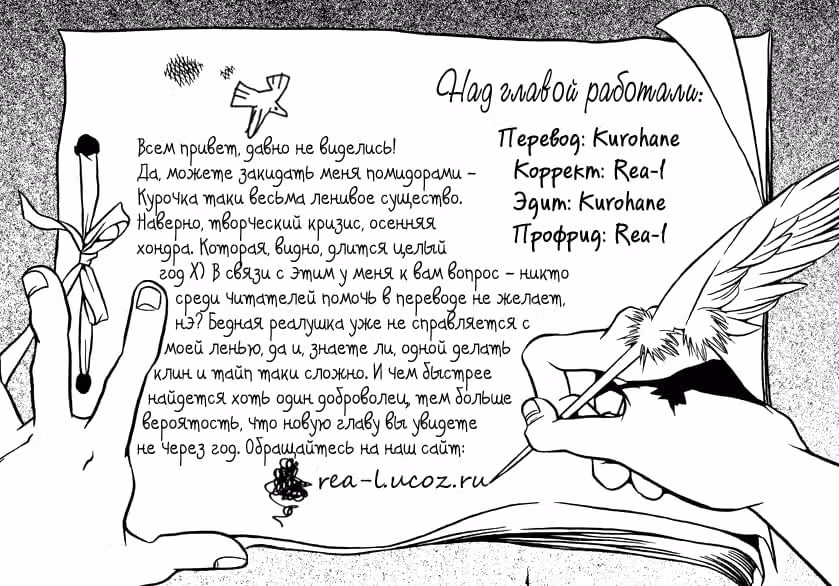 Над главой работали:
Перевод: Kurohane
Коррект: Rea-l
Эдит: Kurohane
Профрид: Rea-l
Всем привет, давно не виделись!
Да, можете закидать меня помидорами –
Курочка таки весьма ленивое существо.
Наверно, творческий кризис, осенняя
хондра. Которая, видно, длится целый
год X) В связи с этим у меня к вам вопрос – никто
среди читателей помочь в переводе не желает,
нэ? Бедная реалушка уже не справляется с
моей ленью, да и, знаете ли, одной делать
клин и тайп таки сложно. И чем быстрее
найдется хоть один доброволец, тем больше
вероятность, что новую главу вы увидете
не через год. Обращайтесь на наш сайт:
rea-l.ucoz.ru